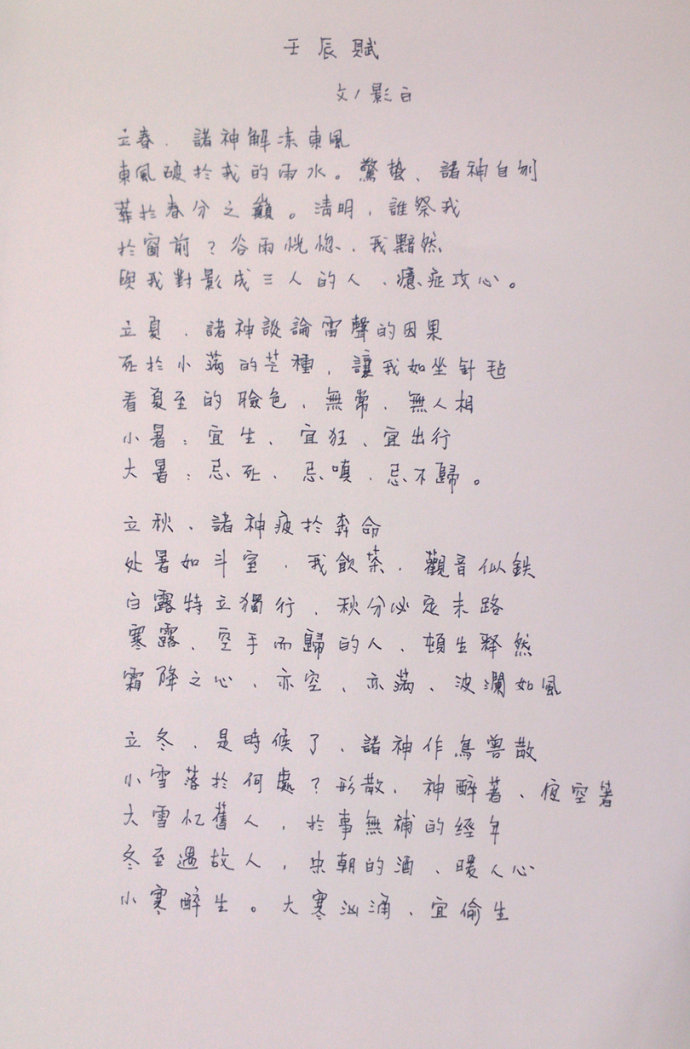 壬辰賦
文/影白
立春、諸神解冻東風
東風破於我的雨水。驚蛰、諸神自刎
葬於春分之巔。清明,誰祭我
於窗前?谷雨恍惚、我黯然
與我對影成三人的人、癔症攻心。
立夏、諸神談論雷聲的因果
死於小滿的芒種,讓我如坐针毡
看夏至的臉色、無常、無人相
小暑:宜生、宜狂、宜出行
大暑:忌死、忌嗔、忌不歸。
立秋、諸神疲於奔命
处暑如斗室、我飲茶、觀音似鉄
白露特立獨行、秋分必是末路
寒露、空手而歸的人、頓生释然
霜降之心、亦空、亦滿、波瀾如風
立冬、是時候了、諸神作鳥兽散
小雪落於何處?形散、神醉著、夜空著
大雪忆舊人,於事無補的經年
冬至遇故人,宋朝的酒、暖人心
小寒醉生。大寒汹涌、宜偷生